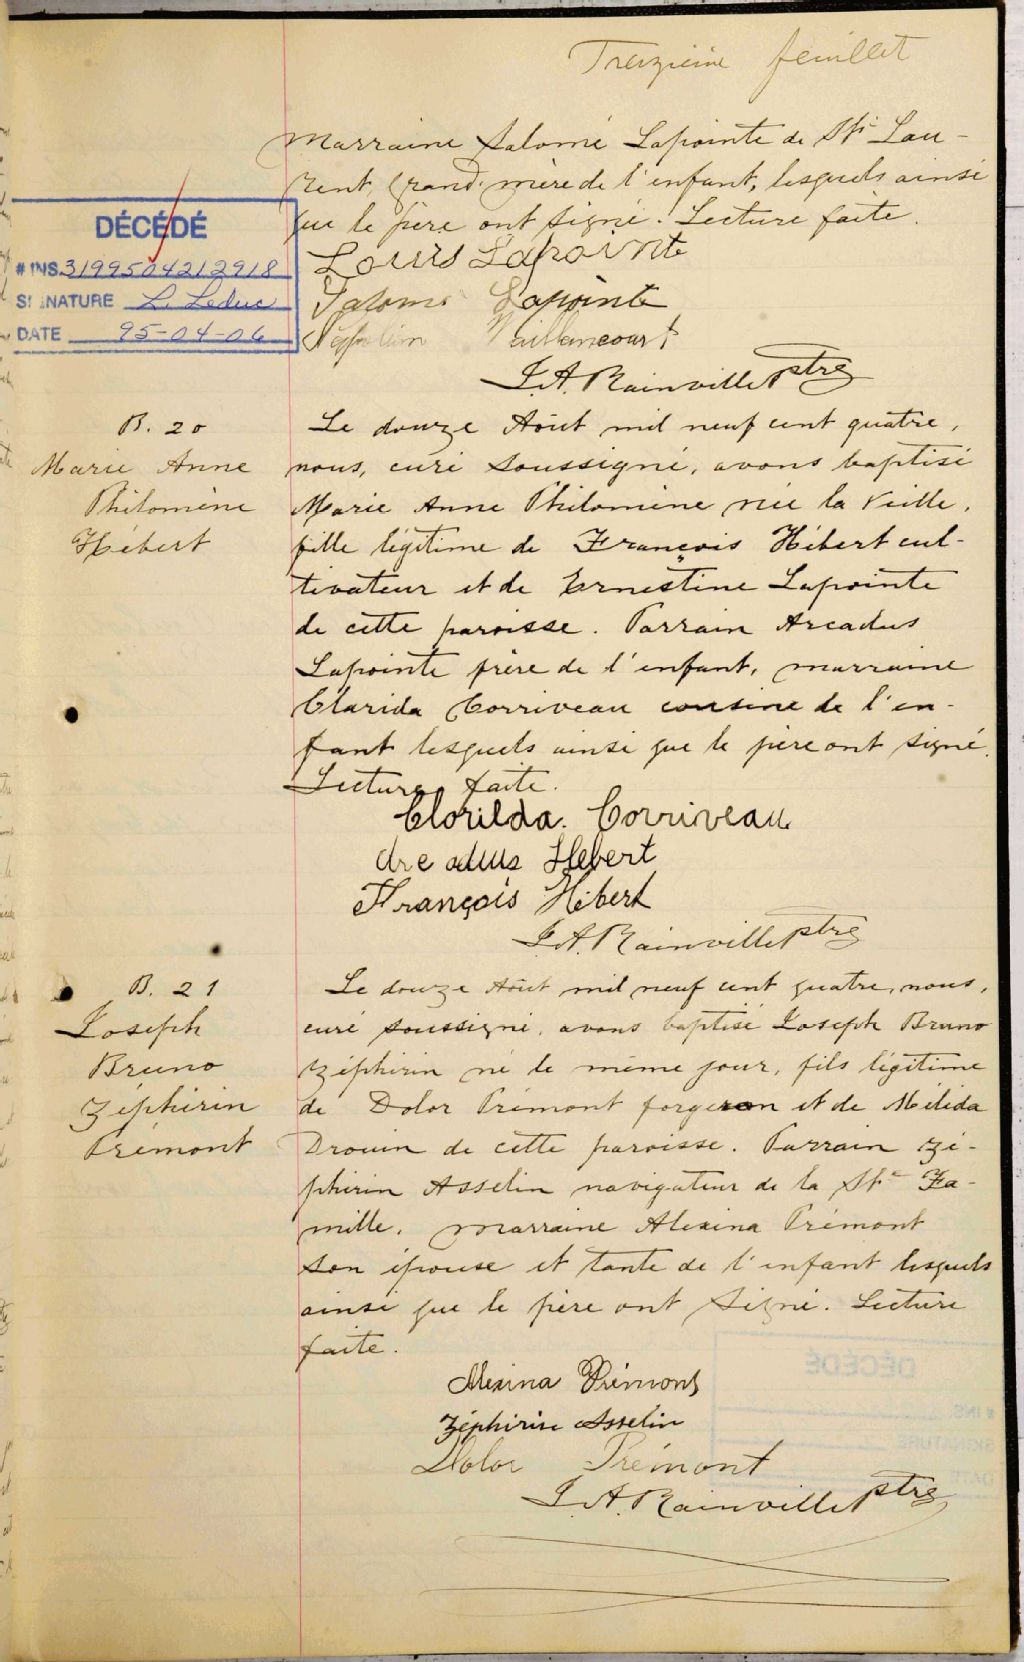 Treizième feuillet
Marraine Salomé Lapointe de St Lau-
rent, Grand-mère de l'enfant, lesquels ainsi
que le père ont signé. Lecture faite.
DÉCÉDÉ
# INS. 3199504212918
SIGNATURE L. Leduc
DATE 95-04-06
Louis Lapointe
Salomé Lapointe
Vaillancourt
J.A. Rainville Ptre
B. 20
Marie Anne
Philomène
Hébert
Le douze Août mil neuf cent quatre,
nous, curé soussigné, avons baptisé
Marie Anne Philomène née la veille,
fille légitime de François Hébert cul-
tivateur et de Ernestine Lapointe
de cette paroisse. Parrain Arcadus
Lapointe frère de l'enfant, marraine
Clarida Corriveau cousine de l'en-
fant lesquels ainsi que le père ont signé.
Lecture faite.
Clorilda Corriveau
Arcadus Hebert
François Hébert
J.A. Rainville Ptre
B. 21
Joseph
Bruno
Zéphirin
Prémont
Le douze Août mil neuf cent quatre, nous,
curé soussigné, avons baptisé Joseph Bruno
Zéphirin né le même jour, fils légitime
de Dolor Prémont forgeron et de Mélida
Drouin de cette paroisse. Parrain Zé-
phirin Asselin navigateur de la Ste Fa-
mille, marraine Alexina Prémont
son épouse et tante de l'enfant lesquels
ainsi que le père ont signé. Lecture
faite.
Alexina Prémont
Zéphirin Asselin
Dolor Prémont
J.A. Rainville Ptre